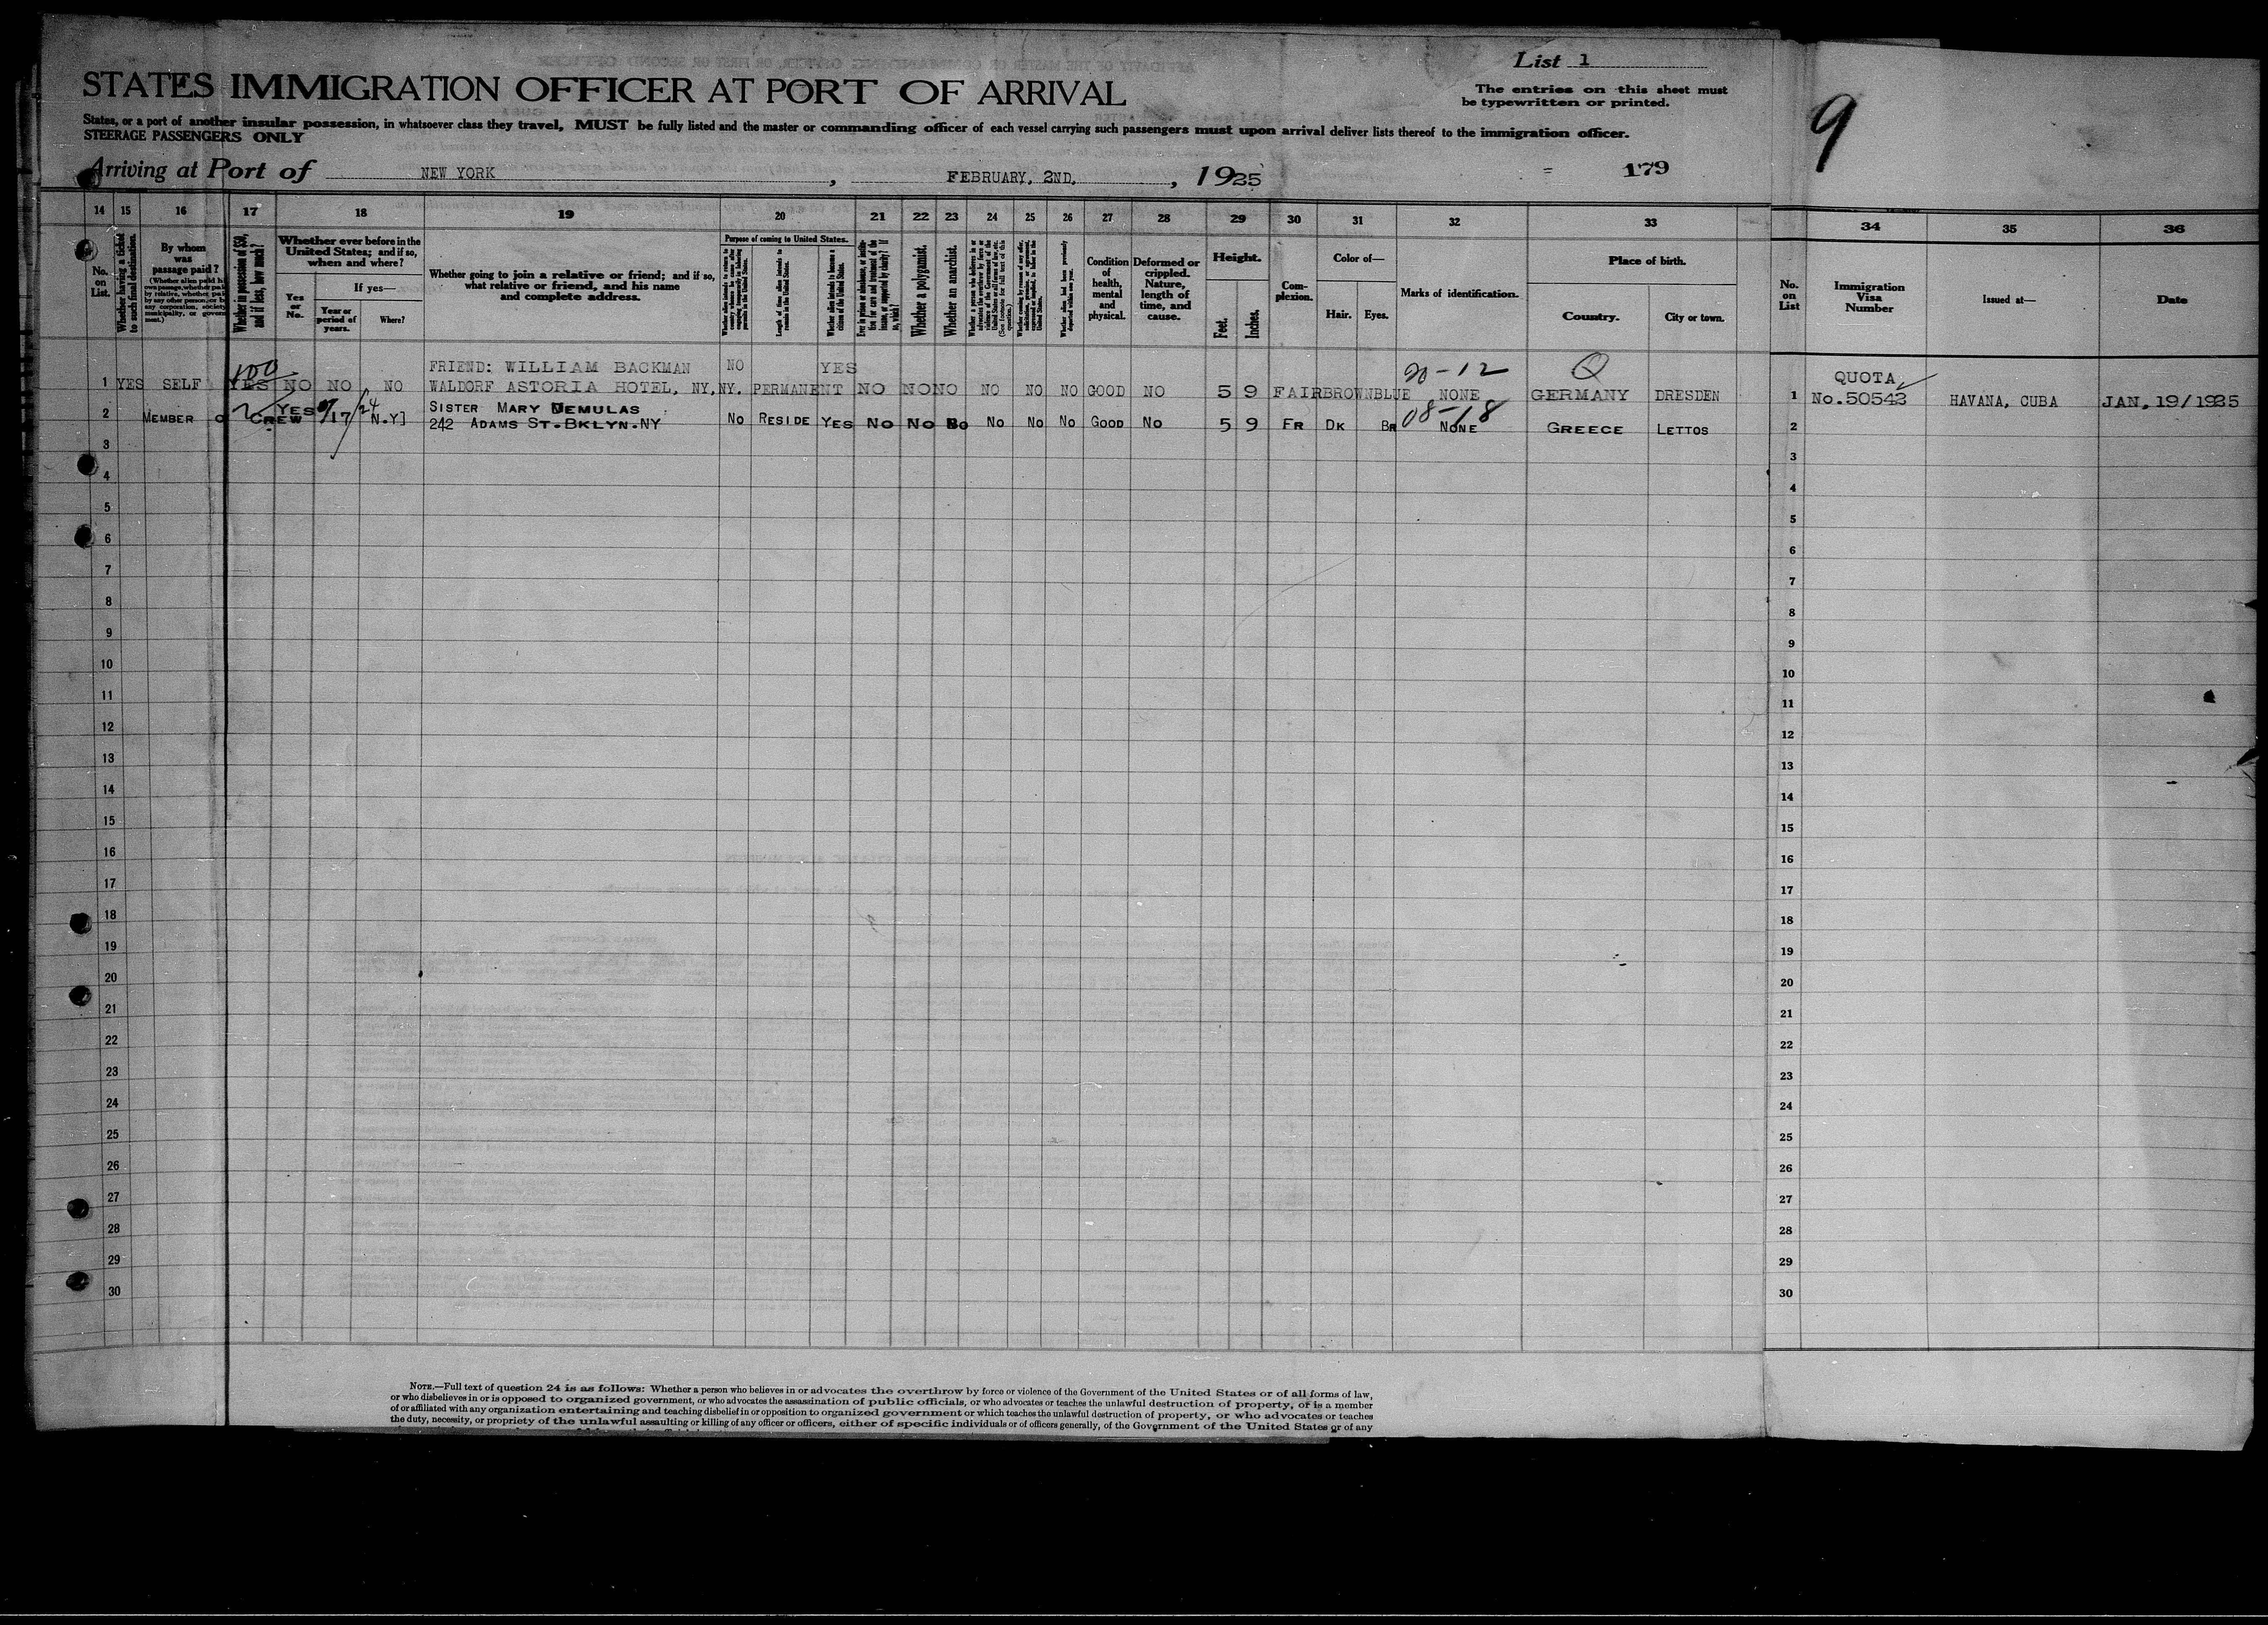 List 1
STATES IMMIGRATION OFFICER AT PORT OF ARRIVAL
The entries on this sheet must
be typewritten or printed.
9
States, or a port of another insular possession, in whatsoever class they travel, MUST be fully listed and the master or commanding officer of each vessel carrying such passengers must upon arrival deliver lists thereof to the immigration officer.
STEERAGE PASSENGERS ONLY
Arriving at Port of NEW YORK, FEBRUARY, 2ND, 1925
179
14 15 16 17 18 19 20 21 22 23 24 25 26 27 28 29 30 31 32 33 34 35 36
No. on List.
Whether having a ticket to such final destination.
By whom was passage paid?
Whether in possession of $50, and if less, how much?
Whether ever before in the United States; and if so, when and where?
Yes or No.
If yes—
Year or period of years.
Where?
Whether going to join a relative or friend; and if so, what relative or friend, and his name and complete address.
Purpose of coming to United States.
Length of time alien intends to remain in the United States.
Whether alien intends to become a citizen of the United States.
Whether a polygamist.
Whether an anarchist.
Condition of health, mental and physical.
Deformed or crippled. Nature, length of time, and cause.
Height.
Feet.
Inches.
Complexion.
Color of—
Hair. Eyes.
Marks of identification.
Place of birth.
Country. City or town.
No. on List
Immigration Visa Number
Issued at—
Date
100 FRIEND: WILLIAM BACKMAN NO YES 20-12 Q QUOTA
1 YES SELF YES NO NO NO WALDORF ASTORIA HOTEL, NY,NY. PERMANENT NO NO NO NO NO NO GOOD NO 5 9 FAIR BROWN BLUE NONE GERMANY DRESDEN 1 No.50543 HAVANA, CUBA JAN, 19/1925
2 MEMBER O CREW YES /17/24 N.Y] SISTER MARY DEMULAS
242 ADAMS ST.BKLYN.NY No RESIDE YES No No No No No Good No 5 9 FR DK BR 08-18 NONE GREECE LETTOS 2
3 3
4 4
5 5
6 6
7 7
8 8
9 9
10 10
11 11
12 12
13 13
14 14
15 15
16 16
17 17
18 18
19 19
20 20
21 21
22 22
23 23
24 24
25 25
26 26
27 27
28 28
29 29
30 30
NOTE.—Full text of question 24 is as follows: Whether a person who believes in or advocates the overthrow by force or violence of the Government of the United States or of all forms of law,
or who disbelieves in or is opposed to organized government, or who advocates the assassination of public officials, or who advocates or teaches the unlawful destruction of property, or is a member
of or affiliated with any organization entertaining and teaching disbelief in or opposition to organized government or which teaches the unlawful destruction of property, or who advocates or teaches
the duty, necessity, or propriety of the unlawful assaulting or killing of any officer or officers, either of specific individuals or of officers generally, of the Government of the United States or of any